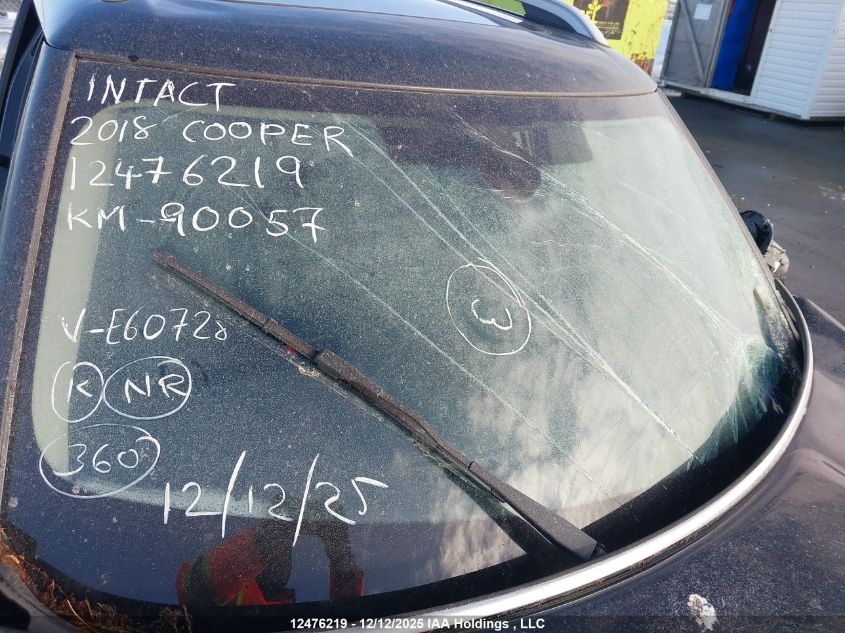 INTACT
2018 COOPER
12476219
KM-90057
V-E60728
K NR
360
12/12/25
12476219 - 12/12/2025 IAA Holdings , LLC